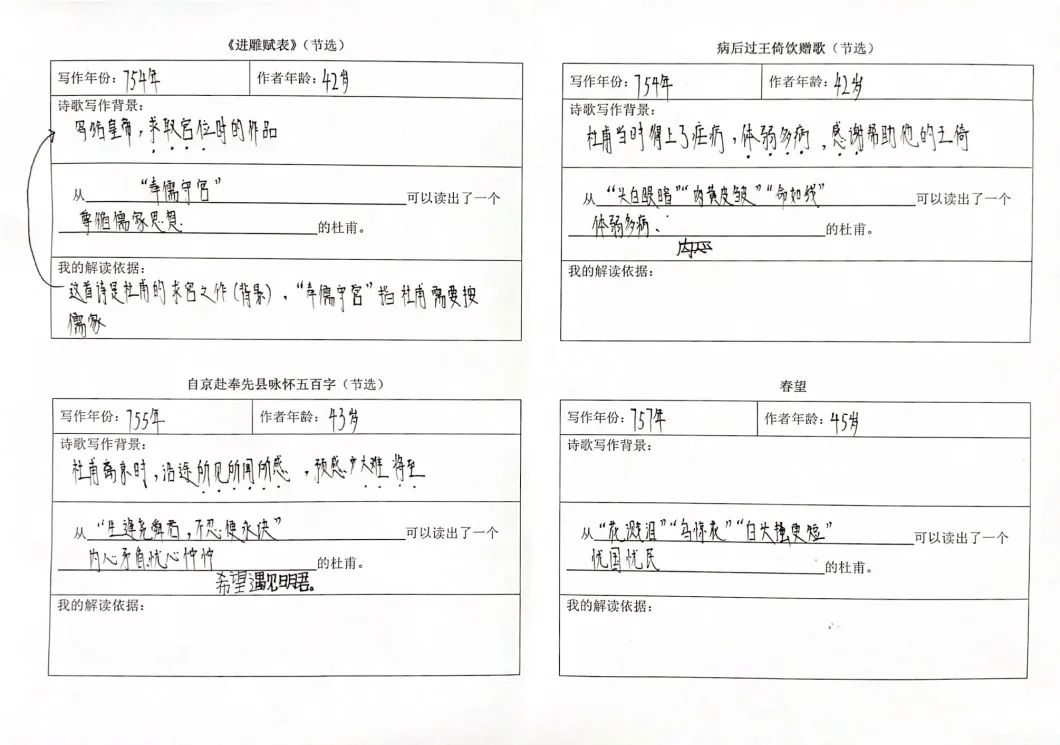 《进雕赋表》（节选）
写作年份：754年 作者年龄：42岁
诗歌写作背景：
写给皇帝，求取官位时的作品
从 “奉儒守官” 可以读出了一个
尊循儒家思想 的杜甫。
我的解读依据：
这首诗是杜甫的求官之作（背景），“奉儒守官”指杜甫需要按
儒家
病后过王倚饮赠歌（节选）
写作年份：754年 作者年龄：42岁
诗歌写作背景：
杜甫当时得上了疟疾，体弱多病，感谢帮助他的王倚
从 “头白眼暗”“肉黄皮皱”“命如线” 可以读出了一个
体弱多病、 的杜甫。
我的解读依据：
自京赴奉先县咏怀五百字（节选）
写作年份：755年 作者年龄：43岁
诗歌写作背景：
杜甫离京时，沿途所见所闻所感，预感大难将至
从 “生逢尧舜君，不忍便永诀” 可以读出了一个
内心矛盾忧心忡忡 的杜甫。
希望遇见明君。
我的解读依据：
春望
写作年份：757年 作者年龄：45岁
诗歌写作背景：
从 “花溅泪”“鸟惊心”“白头搔更短” 可以读出了一个
忧国忧民 的杜甫。
我的解读依据：